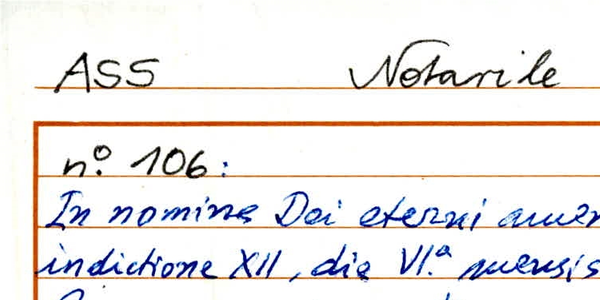 ASS Notarile
n.º 106:
In nomine Dei eterni amen
indictione XII, die VI.ª mensis